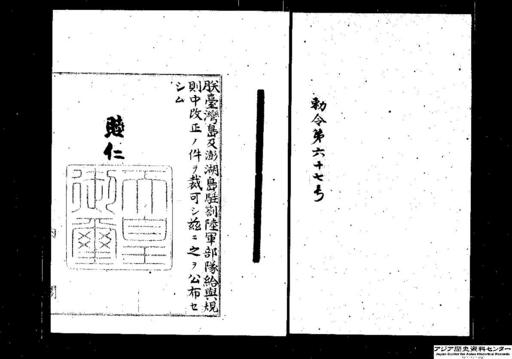 勅令第六十七号
朕臺灣島及澎湖島駐劄陸軍部隊給與規
則中改正ノ件ヲ裁可シ茲ニ之ヲ公布セ
シム
睦仁
天皇
御璽
内
アジア歴史資料センター
Japan Center for Asian Historical Records